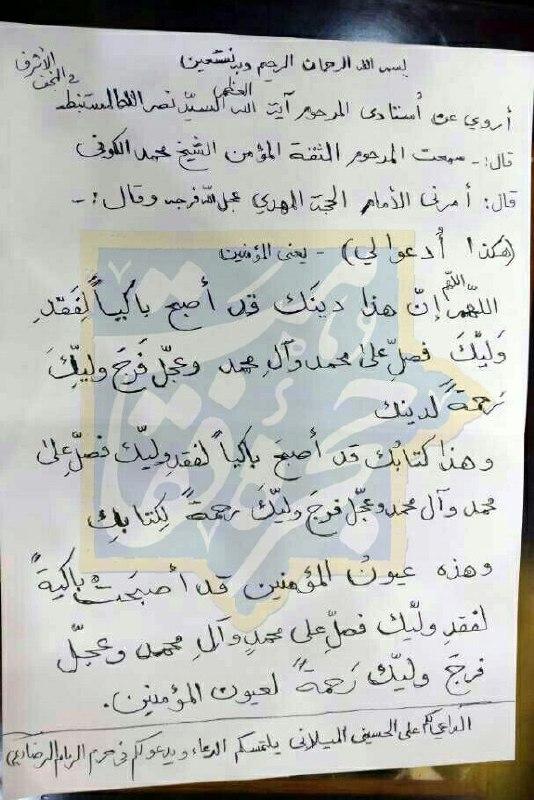 بسم الله الرحمان الرحيم وبه نستعين
في النجف الأشرف
أروي عن أُستاذي المرحوم آية الله العظمى السيّد نصر الله المستنبط
قال:- سمعت المرحوم الثقة المؤمن الشيخ محمد الكوفي
قال: أمرني الأمام الحجة المهدي عجل الله فرجه وقال:-
(هكذا أُدعوا لي) - يعني المؤمنين
اللهم
اللّهمّ إنّ هذا دينَك قد أصبح باكياً لِفَقدِ
وَليّكَ فصلِّ على محمد وآلِ محمد وعجّل فَرَجَ وليّكَ
رَحمةً لدينك
وهذا كتابُك قد أصبحَ باكياً لفقدِ وليّك فصلِّ على
محمد وآل محمد وعجّل فرجَ وليّكَ رحمةً لِكتابِك
وهذه عيونُ المؤمنين قد أصبحَتْ باكيةً
لفقدِ وليّك فصلِّ على محمدٍ وآلِ محمد وعجّل
فرجَ وليّك رَحمةً لعيون المؤمنين.
الداعي لكم علي الحسيني الميلاني يلتمسكم الدعاء ويدعو لكم في حرم الإمام الرضا